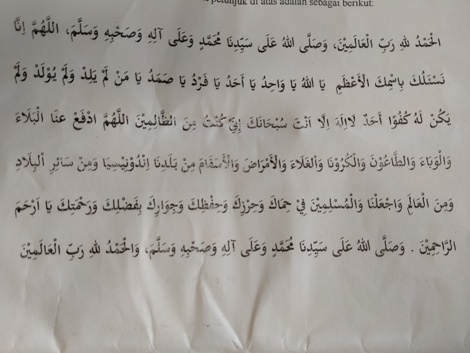 petunjuk di atas adalah sebagai berikut:
الْحَمْدُ للهِ رَبِّ الْعَالَمِيْنَ، وَصَلَّى اللهُ عَلَى سَيِّدِنَا مُحَمَّدٍ وَعَلَى آلِهِ وَصَحْبِهِ وَسَلَّمَ، اللَّهُمَّ اِنَّا
نَسْئَلُكَ بِاسْمِكَ الْاَعْظَمِ يَا اللهُ يَا وَاحِدُ يَا اَحَدُ يَا فَرْدُ يَا صَمَدُ يَا مَنْ لَمْ يَلِدْ وَلَمْ يُوْلَدْ وَلَمْ
يَكُنْ لَهُ كُفُوًا أَحَدٌ لَااِلَهَ اِلَّا اَنْتَ سُبْحَانَكَ اِنِّيْ كُنْتُ مِنَ الظَّالِمِيْنَ اللَّهُمَّ ادْفَعْ عَنَّا الْبَلَاءَ
وَالْوَبَاءَ وَالطَّاعُوْنَ وَالْكُرُوْنَا وَالْغَلَاءَ وَالْأَمْرَاضَ وَالْأَسْقَامَ مِنْ بَلَدِنَا اِنْدُوْنِيْسِيَا وَمِنْ سَائِرِ الْبِلَادِ
وَمِنَ الْعَالَمِ وَاجْعَلْنَا وَالْمُسْلِمِيْنَ فِيْ حِمَاكَ وَحِرْزِكَ وَحِفْظِكَ وَجِوَارِكَ بِفَضْلِكَ وَرَحْمَتِكَ يَا اَرْحَمَ
الرَّاحِمِيْنَ . وَصَلَّى اللهُ عَلَى سَيِّدِنَا مُحَمَّدٍ وَعَلَى آلِهِ وَصَحْبِهِ وَسَلَّمَ، وَالْحَمْدُ للهِ رَبِّ الْعَالَمِيْنَ